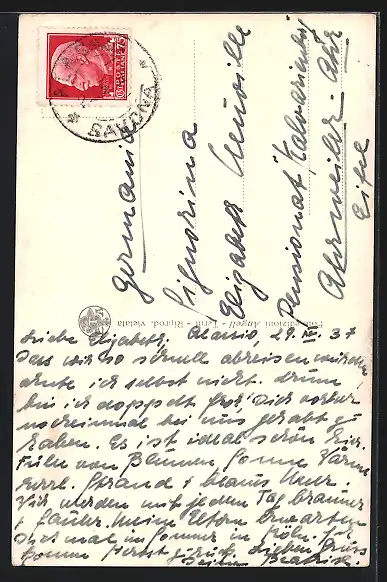 POSTE ITALIANE
75
SAVONA
Germania
Signorina
Elisabeth Neuville
Pensionat Kalvarienberg
Ahrweiler - Ahr
Eifel
Foto edizioni Angeli - Terni - Riprod. vietata
Liebe Elisabeth, Alassio, 29. IV. 37
Dass wir so schnell abreisen würden
ahnte ich selbst nicht. Drum
bin ich doppelt froh, Dich vorher
nocheinmal bei uns gehabt zu
haben. Es ist ideal schön hier.
Fülle von Blumen Sonne Wärme
herrl. Strand & blaues Meer.
Wir werden mit jedem Tag brauner
& fauler. Meine Eltern erwarten
Dies mal im Sommer in Köln. Ich
komme Herbst zurück. Lieben Gruss
Deine Beatrice